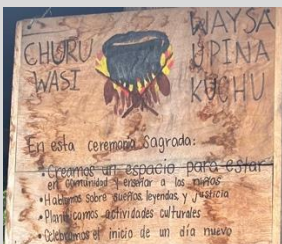 CHURU
WASI
WAYSA
UPINA
KUCHU
En esta ceremonia sagrada:
• Creamos un espacio para estar
en comunidad y enseñar a los niños
• Hablamos sobre sueños, leyendas, y justicia
• Planificamos actividades culturales
• Celebramos el inicio de un día nuevo